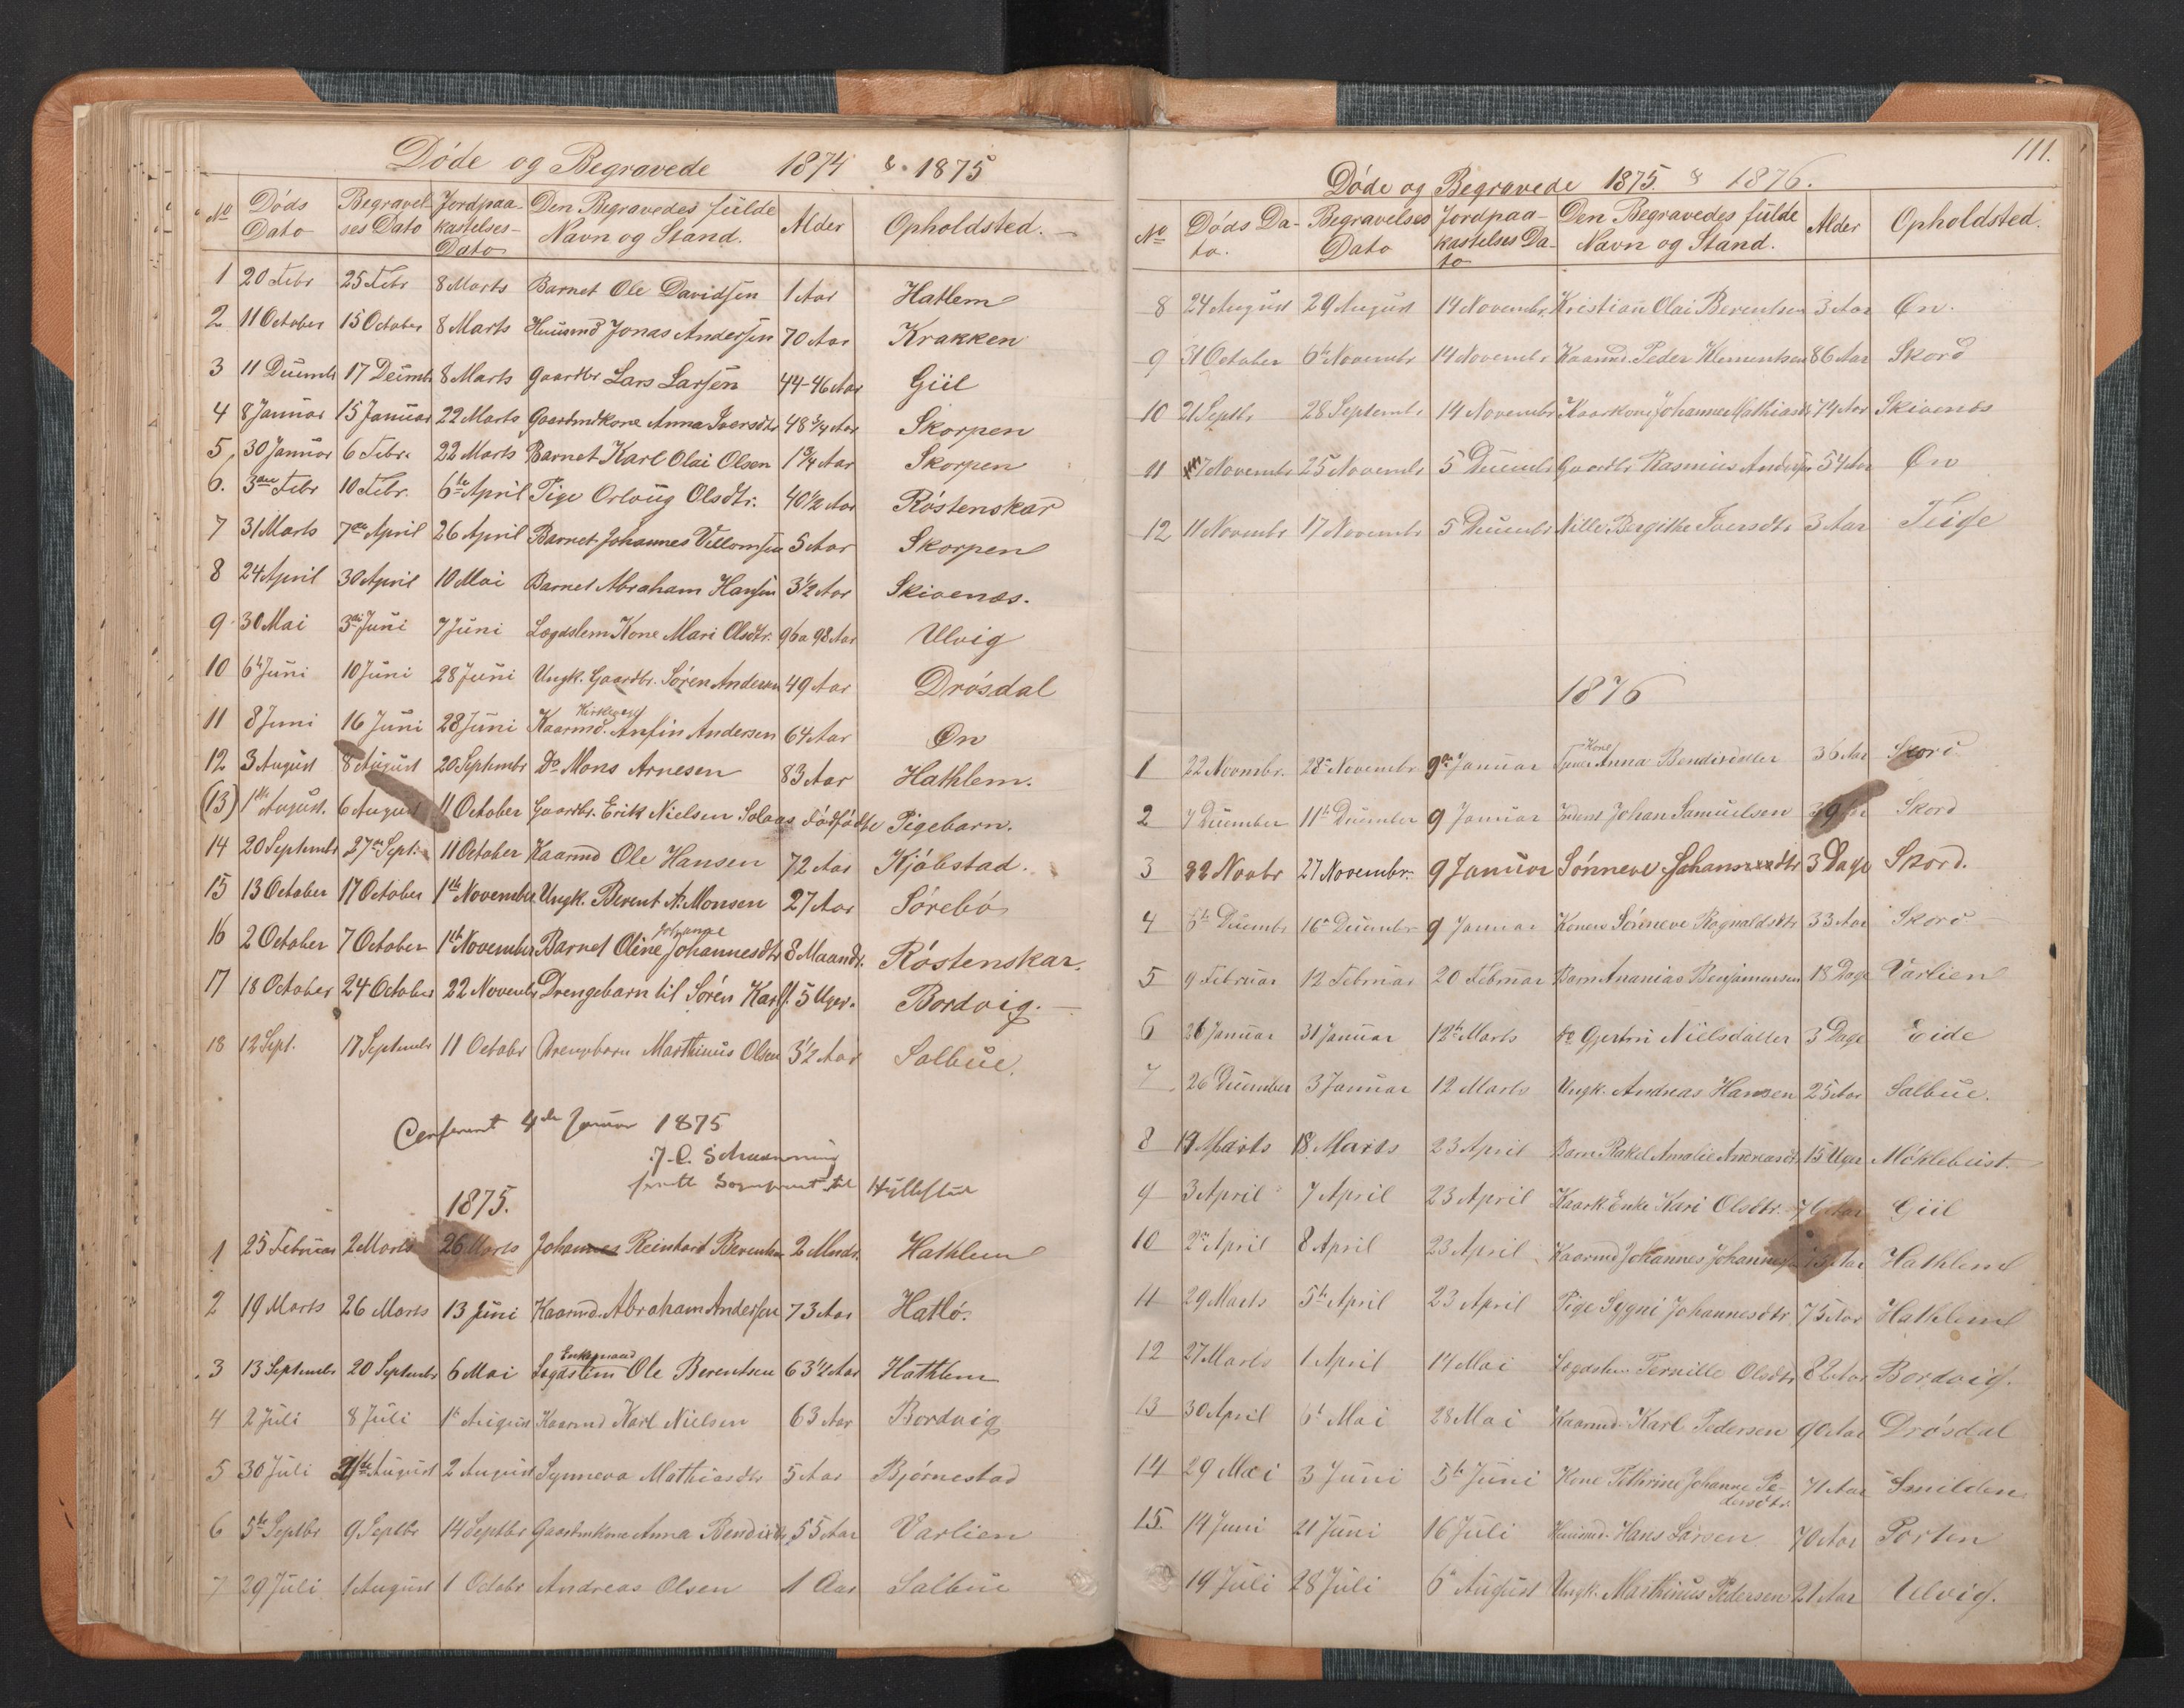 Døde og Begravede 1874 & 1875
No Døds Dato Begravelses Dato Jordpaakastelses-Dato Den Begravedes fulde Navn og Stand. Alder Opholdsted.
1 20 Febr 25 Febr 8 Marts Barnet Ole Davidsen 1 Aar Hatlem
2 11 October 15 October 8 Marts Huusmd Jonas Andersen 70 Aar Krakken
3 11 Decemb 17 Decemb 8 Marts Gaardbr Lars Larsen 44-46 Aar Giil
4 8 Januar 15 Januar 22 Marts Gaardmdkone Anna Iversdtr 48 3/4 Aar Skorpen
5 30 Januar 6 Febr. 22 Marts Barnet Karl Olai Olsen 1 3/4 Aar Skorpen
6. 3die Febr 10 Febr. 6te April Pige Orloug Olsdtr. 40 1/2 Aar Röstenskar
7 31 Marts 7de April 26 April Barnet Johannes Villomsen 5 Aar Skorpen
8 24 April 30 April 10 Mai Barnet Abraham Hansen 3 1/2 Aar Skivenæs.
9 30 Mai 3die Juni 7 Juni Lægdslem Kone Mari Olsdtr. 96 a 98 Aar Ulvig
10 6te Juni 10 Juni 28 Juni Ungk. Gaardbr. Sören Andersen 49 Aar Drösdal
11 8 Juni 16 Juni 28 Juni Kaarmd. Anfin Andersen 64 Aar Øn
12 3 August 8 August 20 Septembr Do Mons Arnesen 83 Aar Hathlem.
(13) 1ste August. 6 August 11 October Gaardbr. Erik Nielsen Solaas dödfödte Pigebarn.
14 20 Septembr 27de Sept. 11 October Kaarmd Ole Hansen 72 Aar Kjöbstad.
15 13 October 17 October 1ste November Ungk. Berent A. Monsen 27 Aar Sörebö
16 2 October 7 October 1ste November Barnet Oline Johanne Johannesdtr 8 Maandr. Röstenskar.
17 18 October 24 October 22 Novembr Drengebarn til Sören Karls. 5 Uger. Bordvig.
18 12 Sept. 17 Septembr 11 Octobr Drengebarn Marthinus Olsen 3 1/2 Aar Salbue.
Confereret 4de Januar 1875
Hyllestad
1875.
1 25 Februar 2 Marts 26 Marts Johannes Reinhard Berentsen 2 Mndr. Hathlem
2 19 Marts 26 Marts 13 Juni Kaarmd. Abraham Andersen 73 Aar Hatlö.
3 13 Septembr 20 Septembr 6 Mai Enkemand Lægdslem Ole Berentsen 63 1/2 Aar Hathlem
4 2 Juli 8 Juli 1te August Kaarmd Karl Nielsen 63 Aar Bordvig
5 30 Juli August 2 August Synneva Mathiasdtr 5 Aar Björnestad
6 5te Septbr 9 Septbr 14 Septbr Gaardmkone Anna Bendixdr 55 Aar Varlien
7 29 Juli 1 August 1 Octobr Andreas Olsen 1 Aar Salbue
111.
Døde og Begravede 1875. & 1876.
No Døds Dato. Begravelses Dato Jordpaakastelses Dato Den Begravedes fulde Navn og Stand. Alder Opholdsted.
8 24 August 29 August 14 Novembr. Kristian Olai Berentsen 3 Aar Øn.
9 31 October 6te Novembr 14 Novembr Kaarmd. Peder Klementsen 86 Aar Skord
10 21 Septbr 28 Septembr 14 Novembr Kaarkone Johanne Mathiasdr 74 Aar Skivenæs
11 17 Novembr 25 Novembr 5 Decembr Gaardbr Rasmus Andersen 54 Aar Øn
12 11 Novembr 17 Novembr 5 Decembr Nille Bergithe Iversdtr 3 Aar Teige
1876
1 22 Novmbr. 28de Novembr 9de Januar Kone Anna Bendixdatter 36 Aar Skord
2 7 December 11te December 9 Januar Johan Samuelsen 39 Aar Skord
3 22 Novbr 27 Novembr. 9 Januar Sönneve Johansdtr 3 Dage Skord.
4 Decembr 16de Decembr 9 Januar Konen Sönneve Rognaldsdtr 33 Aar Skord
5 9 Februar 12 Februar 20 Februar Barn Ananias Benjaminsen 18 Dage Varlien
6 26 Januar 31 Januar 12te Marts do Gjertru Nielsdatter 3 Dage Eide
7 26 December 3 Januar 12 Marts Ungk. Andreas Hansen 25 Aar Salbue.
8 17 Marts 18 Marts 23 April Barn Rakel Amalie Andreasdtr 15 Uger Möklebust.
9 3 April 7 April 23 April Kaark Enke Kari Olsdtr. 76 Aar Giil
10 2de April 8 April 23 April Kaarmd Johannes Johannesen Aar Hathlem
11 29 Marts 5te April 23 April Pige Sygni Johannesdtr 75 Aar Hathlem
12 27 Marts 1 April 14 Mai Lægdslem Pernille Olsdtr 82 Aar Bordvig.
13 30 April 6te Mai 28 Mai Kaarmd Karl Pedersen 90 Aar Drösdal
14 29 Mai 3 Juni 5te Juni Kone Pethrine Johanne Pedersdtr. 71 Aar Smilden
15. 14 Juni 21 Juni 16 Juli Huusmd. Hans Larsen 70 Aar Porten
19 Juli 28 Juli 6te August Ungk. Marthinus Pedersen 21 Aar Ulvig.